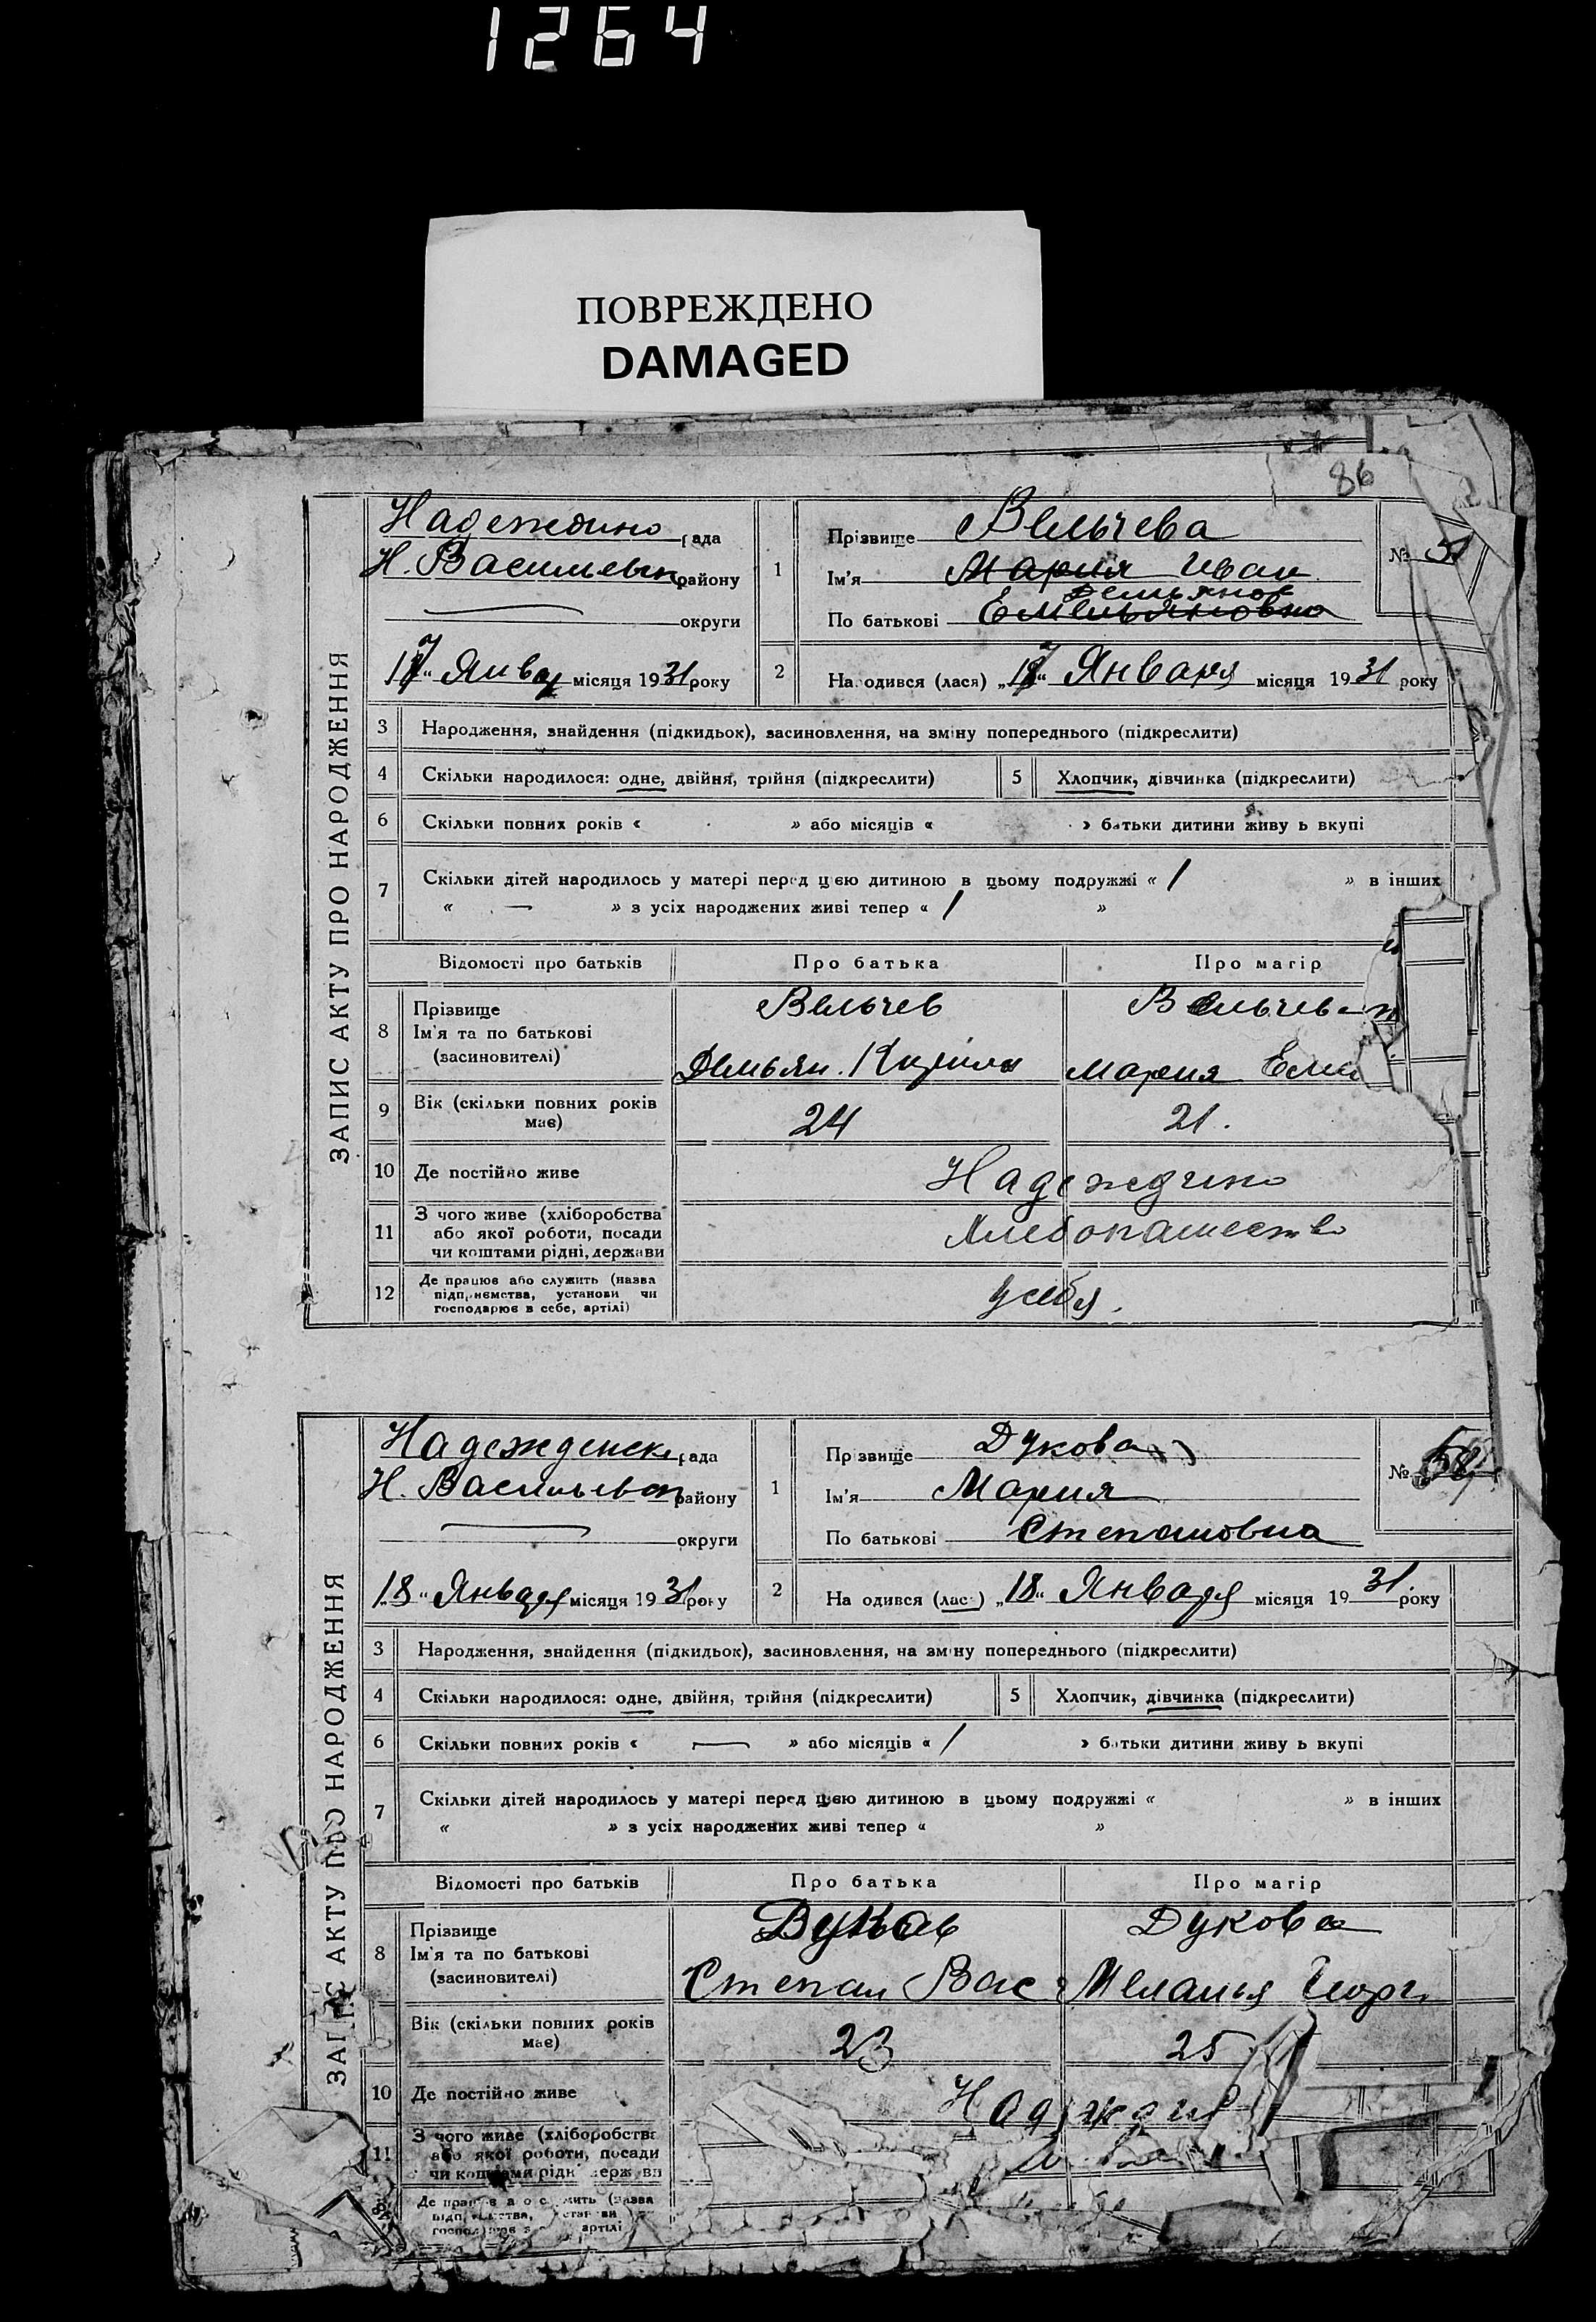 1264
ПОВРЕЖДЕНО
DAMAGED
86
ЗАПИС АКТУ ПРО НАРОДЖЕННЯ
Надеждино рада
Н. Васильевк району
округи
17 " Январ місяця 1931 року
1 Прізвище Вельчева
Ім'я Мария Иван
Демьянов
По батькові Емельяновна
№ 51
2 Народився (лася) „17" Января місяця 1931 року
3 Народження, знайдення (підкидьок), засиновлення, на зміну попереднього (підкреслити)
4 Скільки народилося: одне, двійня, трійня (підкреслити) 5 Хлопчик, дівчинка (підкреслити)
6 Скільки повних років « » або місяців « » батьки дитини живу ь вкупі
7 Скільки дітей народилось у матері перед цією дитиною в цьому подружжі « 1 » в інших
« — » з усіх народжених живі тепер « 1 »
Відомості про батьків Про батька Про матір
8 Прізвище Вельчев Вельчева
Ім'я та по батькові
(засиновителі) Демьян. Кирилл Мария Емел
9 Вік (скільки повних років має) 24 21.
10 Де постійно живе Надеждино
11 З чого живе (хліборобства
або якої роботи, посади Хлебопашество
чи коштами рідні, держави
12 Де працює або служить (назва
підприємства, установи чи у себя.
господарює в себе, артілі)
ЗАПИС АКТУ ПРО НАРОДЖЕННЯ
Надежденск рада
Н. Васильевск району
округи
18 " Января місяця 1931 року
1 Прізвище Дукова
Ім'я Мария
По батькові Степановна
№
2 На одився (лас ) „18" Января місяця 1931. року
3 Народження, знайдення (підкидьок), засиновлення, на зміну попереднього (підкреслити)
4 Скільки народилося: одне, двійня, трійня (підкреслити) 5 Хлопчик, дівчинка (підкреслити)
6 Скільки повних років « — » або місяців « 1 » батьки дитини живу ь вкупі
7 Скільки дітей народилось у матері перед цією дитиною в цьому подружжі « » в інших
« » з усіх народжених живі тепер « »
Відомості про батьків Про батька Про матір
8 Прізвище Дуков Дукова
Ім'я та по батькові
(засиновителі) Степан Вас Меланья Георг.
Вік (скільки повних років має) 23 25
10 Де постійно живе Надеждин
11 З чого живе (хліборобства
або якої роботи, посади
чи коштами рідн держ ви
Де прац є а о с жить (назва
підп ємства,
артілі